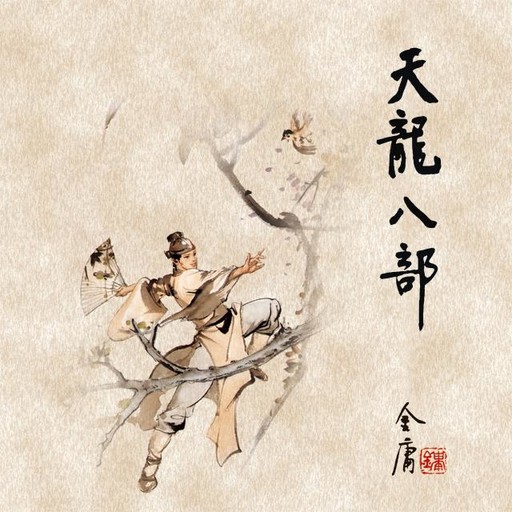 天龍八部
金庸